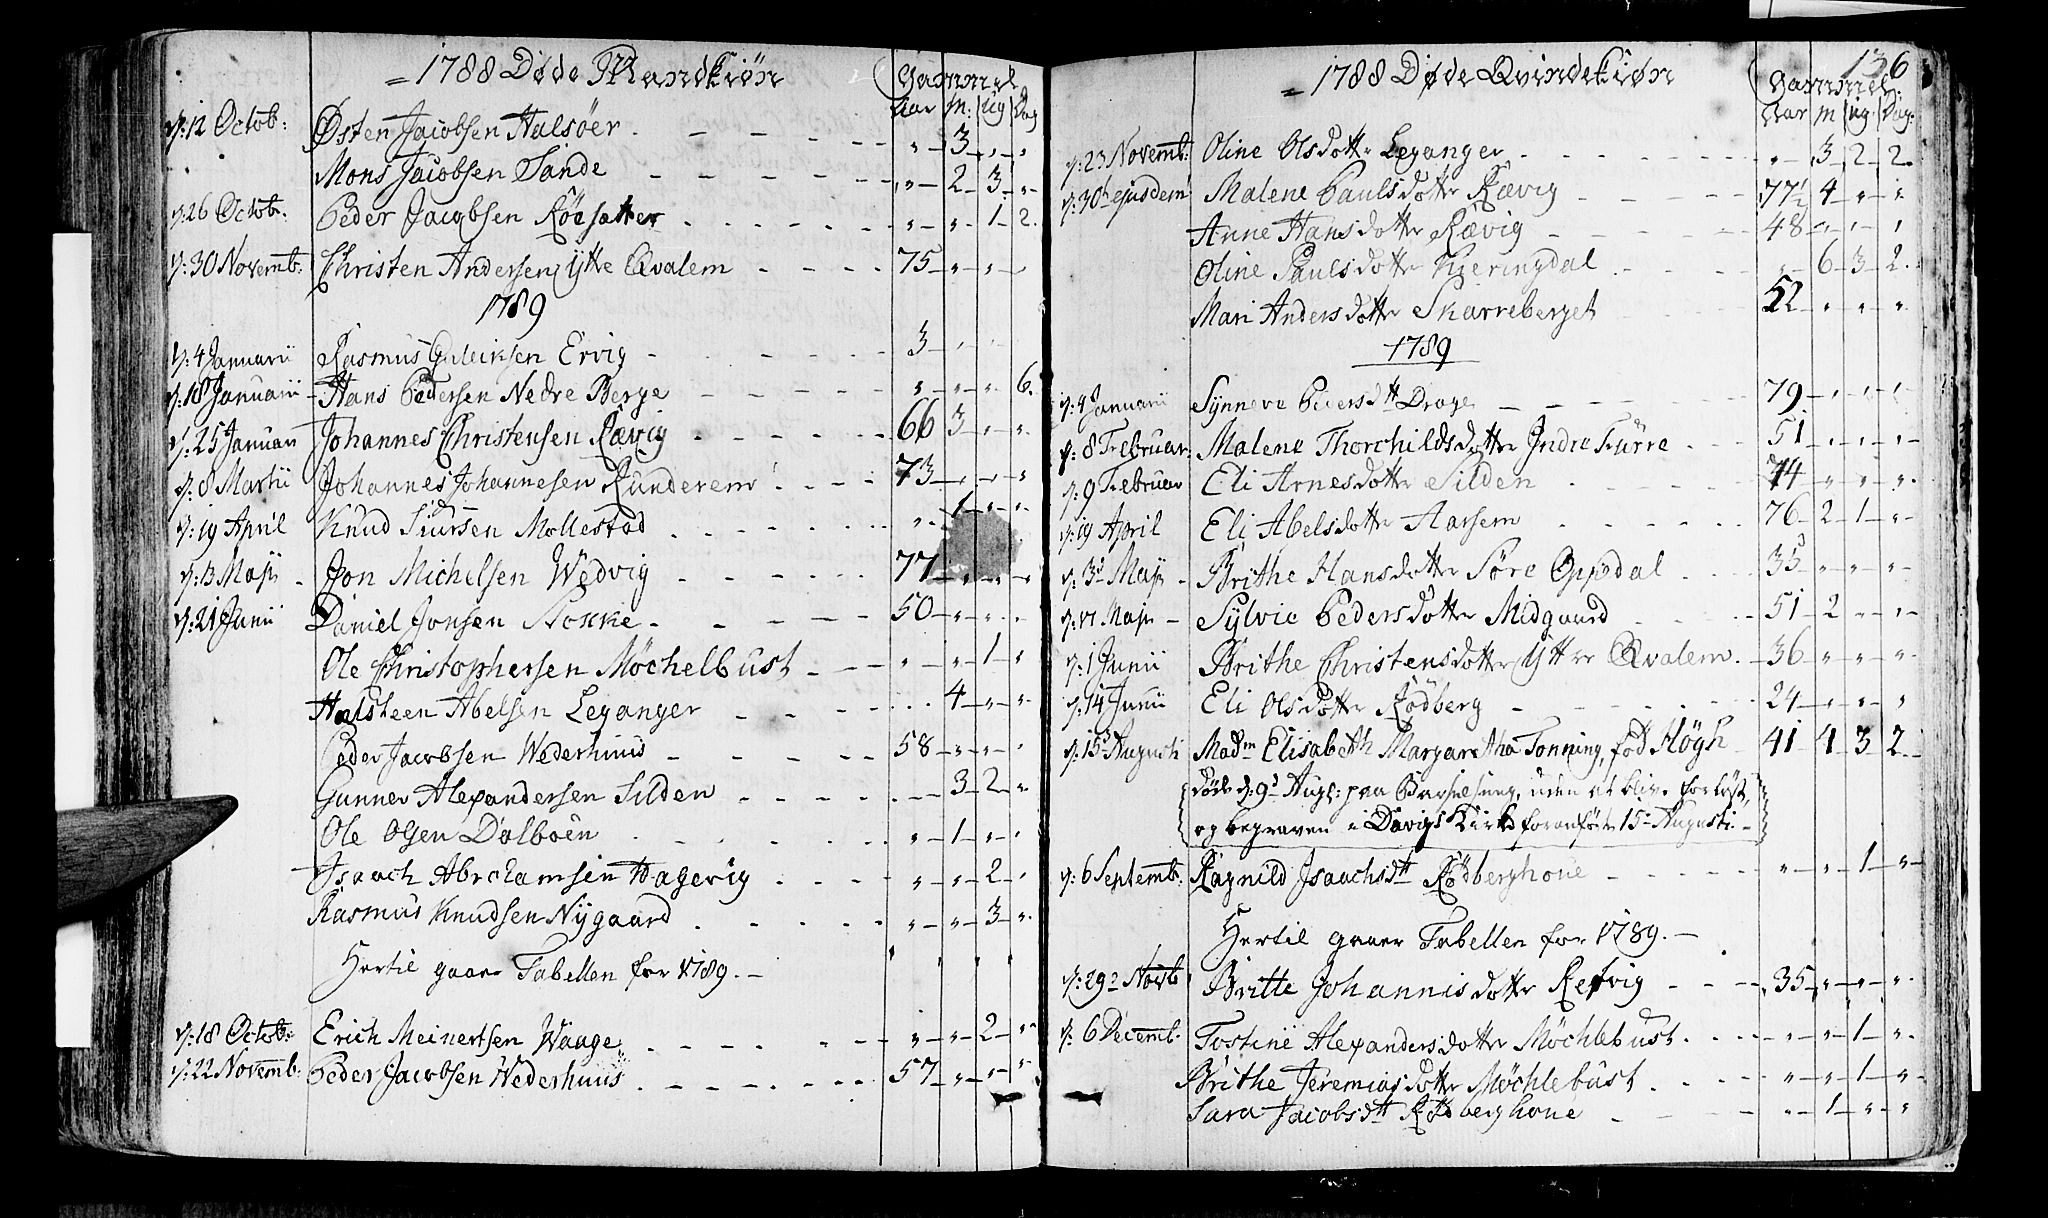 1788 Døde Mandkiøn
Gammel
Aar M: Ug Dag
d: 12 Octob: Østen Jacobsen Halsöer - 3 " "
Mons Jacobsen Sande " 2 3 "
d: 26 Octob. Peder Jacobsen Röesætter " " 1 2.
d: 30 Novemb: Christen Andersen Ytte Qvalem 75 " " "
1789
d: 4 Januarii Rasmus Guleiksen Ervig 3 " "
d: 18 Januarii Hans Pedersen Nedre Berge " " " 6.
d: 25 Januari Johannes Christensen Rævig 66 3 " "
d: 8 Martii Johannes Johannesen Runderem 73 " " "
d: 19 April Knud Siursen Mollestad " 1 " "
d: 13 Maji Jon Michelsen Wedvig 77 " " "
d: 21 Junii Daniel Jonsen Nokke 50 " " "
Ole Christophersen Möchelbust " " 1 "
Halsteen Abelsen Leganger " 4 " "
Peder Jacobsen Wederhuus 58 " " "
Gunner Alexandersen Silden " 3 2 "
Ole Olsen Dalböen " 1 " "
Isaach Abrahamsen Hagevig " " 2 "
Rasmus Knudsen Nygaard " " 3 "
Hertil gaaer Tabellen for 1789.
d: 18 Octob: Erich Meinertsen Waage " " 2 "
d: 22 Novemb: Peder Jacobsen Wederhuus 57 " " "
136
1788 Døde Qvindekiøn
Gammel
Aar M Ug. Dag.
d: 23 Novemb: Oline Olsdotter Leganger " 3 2 2.
d: 30 ejusdem Malene Paulsdotter Rævig 77½ 4 " "
Anne Hansdotter Rævig 48 " " "
Oline Paulsdotter Kieringdal " 6 3 2.
Mari Andersdotter Skarreberget 52 " " "
1789
d: 4 Januarii Synneve Pedersdtt Drage 79 " " "
d: 8 Februar: Malene Thorchildsdotter Indre Furre 51 " " "
d: 9 Februar Eli Arnesdotter Silden 44 " " "
d: 19 April Eli Abelsdotter Aarsem 76 2 1 "
d: 3d Maji Brithe Hansdotter Söre Oppedal 35 " " "
d: 17 Maji Sylvie Pedersdotter Midgaard 51 2 " "
d: 1 Junii Brithe Christensdotter Ytter Qvalem 36 " " "
d: 14 Junii Eli Olsdotter Rödberg 24 " " "
d: 15 Augusti Madm Elisabeth Margaretha Tonning, föd Högh 41 4 3 2
döde d. 9d Aug: paa Barselseng, uden at blive forløst,
og begraven i Davigs Kirke foranførte 15 Augusti
d: 6 Septemb. Ragnild Isaachsdtt Rödberghoue " " 1 "
Hertil gaaer Tabellen for 1789.
d: 29 Novb Britte Johannisdotter Refvig 35 " " "
d: 6 Decemb. Tostine Alexandersdotter Möchlebust " " 1 "
Brithe Jeremiasdotter Möchlebust " " 1 "
Sara Jacobsdtt Rödberghoue " 1 " "